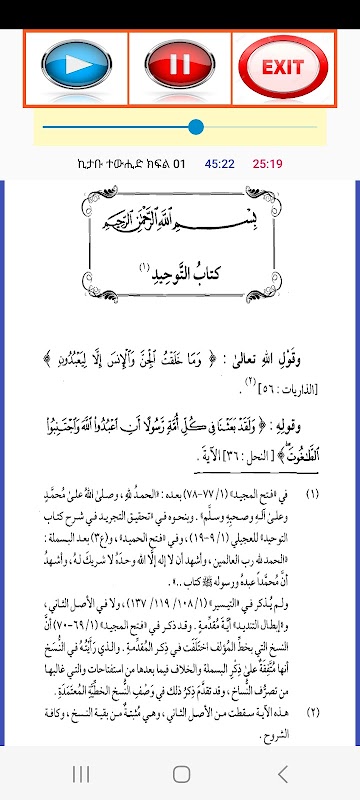 EXIT
ኪታቡ ተውሒድ ክፍል 01 45:22 25:19
بِسْمِ اللَّهِ الرَّحْمَٰنِ الرَّحِيمِ
كتابُ التَّوحِيدِ (١)
وقَوْلِ اللهِ تعالىٰ : ﴿ وَمَا خَلَقْتُ ٱلْجِنَّ وَٱلْإِنسَ إِلَّا لِيَعْبُدُونِ ﴾
[الذاريات : ٥٦] (٢) .
وقولِهِ : ﴿ وَلَقَدْ بَعَثْنَا فِي كُلِّ أُمَّةٍ رَّسُولًا أَنِ ٱعْبُدُوا۟ ٱللَّهَ وَٱجْتَنِبُوا۟
ٱلطَّٰغُوتَ ﴾ [ النحل : ٣٦] الآيةَ .
(١) في «فتح المجيد» (١/ ٧٧-٧٨) بعده : «الحمدُ للهِ، وصلى اللهُ علىٰ مُحمَّدٍ
وعلىٰ آلِهِ وصحبِهِ وسلَّم» . وبنحوه في «تحقيق التجريد في شرح كتاب
التوحيد» للعجيلي (١/ ٩-١٩)، وفي «فتح الحميد»، و(ع٣) بعد البسملة :
«الحمد لله رب العالمين، وأشهد أن لا إله إلَّا الله وحدَهُ لا شريكَ لهُ، وأشهدُ
أنَّ مُحمَّداً عبدُهُ ورسولُه ﷺ كتاب ..» .
ولم يُذكر في «التيسير» (١/ ١٠٨/ ١١٩/ ١٣٧)، ولا في الأصل الثاني،
و«إبطال التنديد» أيَّةُ مُقدِّمةٍ . وقد ذكر في «فتح المجيد» (١/ ٦٩-٧٠) أنَّ
النسخ التي بخطِّ المُؤلف اختلفَت في ذِكرِ المُقدِّمةِ . والذي رَأيتُهُ في النُّسَخِ
أنها مُتَّفِقَةٌ علىٰ ذِكْرِ البسملة والخلاف فيما بعدها من استفتاحات والتي غالبها
من تصرُّف النُّساخ، وقد تقدَّمَ ذِكرُ ذلك في وَصْفِ النُّسخ الخطِّيَّةِ المُعتمَدَةِ .
(٢) هذه الآية سقطت من الأصل الثاني، وهي مُثبتةٌ من بقية النسخ، وكافة
الشروح .